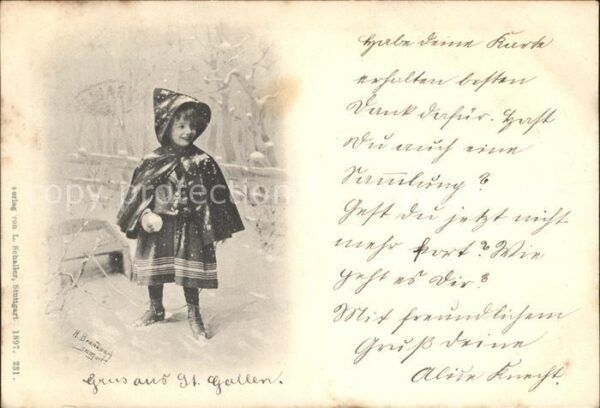 Habe deine Karte
erhalten besten
Dank dafür. Hast
Du auch eine
Sammlung?
Gest du jetzt nicht
mehr fort? Wie
geht es Dir?
Mit freundlichem
Gruß deine
Alice Knecht.
Grus aus St. Gallen.
Verlag von L. Schaller, Stuttgart. 1897. 231.
copy protection